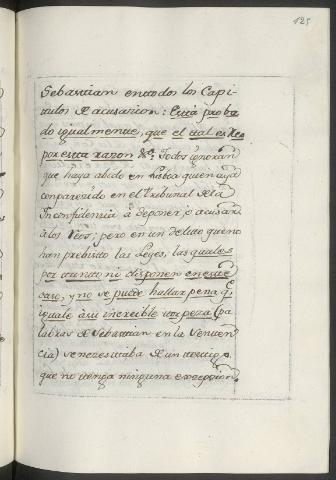 125
Sebastian en todos los Capi-
tulos de acusacion: Está proba
do igualmente, que el tal es Reo
por esta razon &c.ª Todos ignoran
que haya abido en Lisboa quien aya
comparezido en el tribunal de la
Inconfidencia á deponer, o acusar
à los Rēos; pero en un Delito que no
han prebisto las Leyes, las quales
por tanto ni disponen en este
caso, y no se puede hallar pena q.e
iguale à su increible torpeza (pa
labras de Sebastian en la Senten
cia) se necesitaba de un testigo,
que no tenga ninguna excepcion